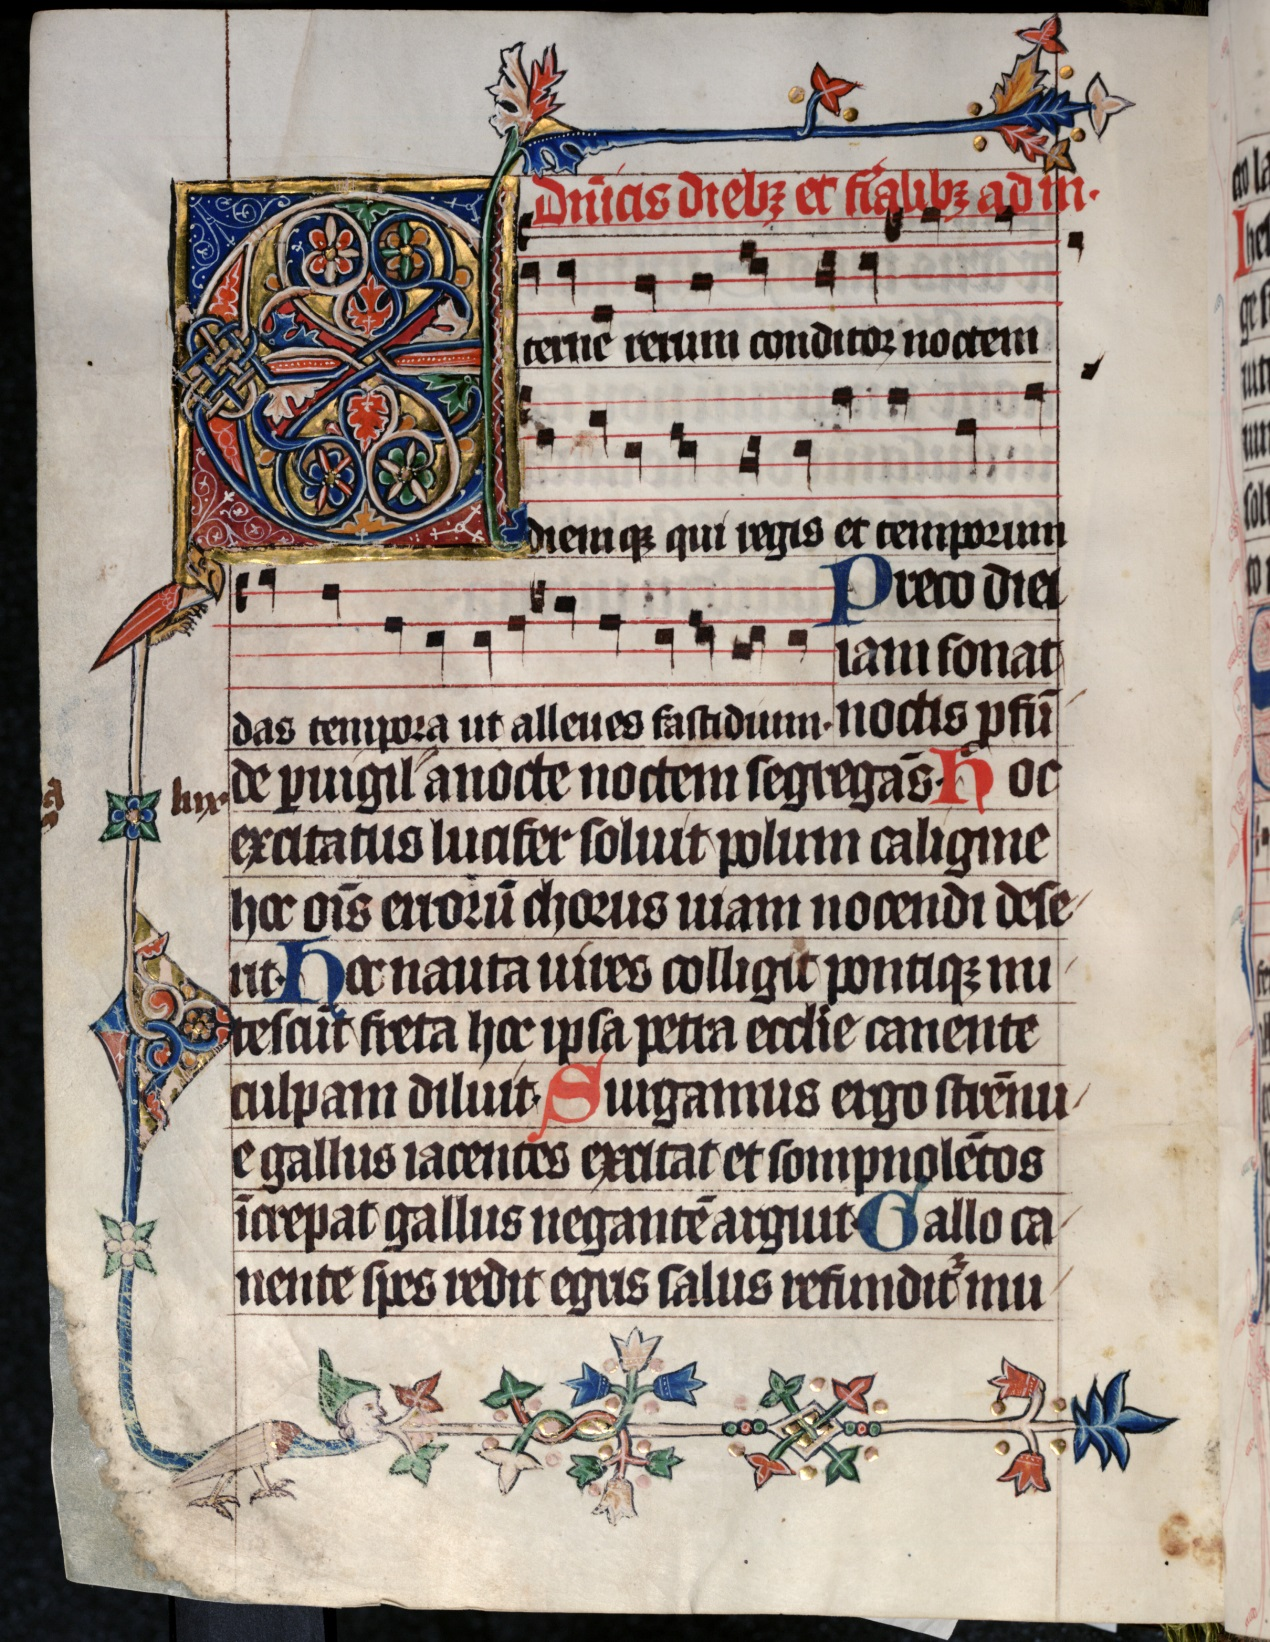 Dn̄icis dieb⁊ et fīalib⁊ ad m.
Eterne rerum conditor noctem
diemq⁊ qui regis et temporum
Preco diei
iam sonat
das tempora ut alleues fastidium. noctis ꝓfū
de ꝑuigil a nocte noctem segregās. Hoc
lux
excitatus lucifer soluit polum caligine
hoc oīs errorū chorus uiam nocendi dese
rit. Hoc nauta uires colligit pontiq⁊ mi
tescūt freta hoc ipsa petra ecclie canente
culpam diluit. Surgamus ergo strēnu
e gallus iacentes excitat et sompnolētos
īcrepat gallus negantē arguit. Gallo ca
nente spes redit egris salus refundit᷑ mu